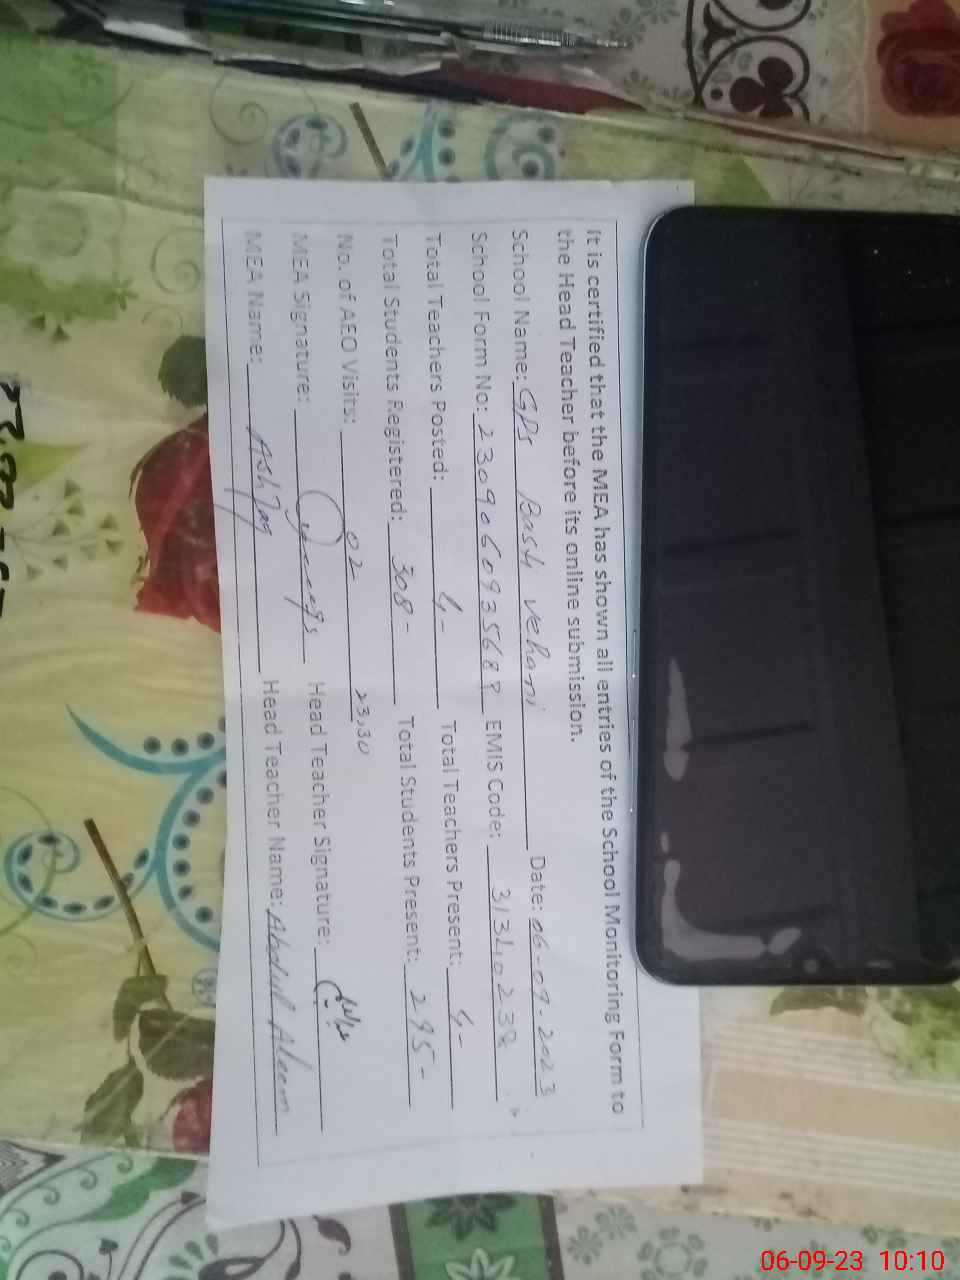 It is certified that the MEA has shown all entries of the School Monitoring Form to
the Head Teacher before its online submission.
School Name: GPS Basti Date: 06-09-2023
School Form No: EMIS Code: 31340238
Total Teachers Posted: 4- Total Teachers Present: 4-
Total Students Registered: 308- Total Students Present: 295-
No. of AEO Visits: 02- 23,30
MEA Signature: Head Teacher Signature:
MEA Name: Ashfaq Head Teacher Name: Abdul Aleem
06-09-23 10:10